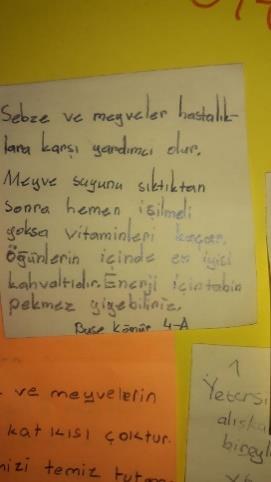 Sebze ve meyveler hastalık-
lara karşı yardımcı olur.
Meyve suyunu sıktıktan
sonra hemen içilmeli
yoksa vitaminleri kaçar.
Öğünlerin içinde en iyisi
kahvaltıdır. Enerji için tahin
pekmez yiyebiliriz.
Buse Kömür 4-A
ve meyvelerin
katkısı çoktur.
mizi temiz
Yetersi
alışka
bireyl